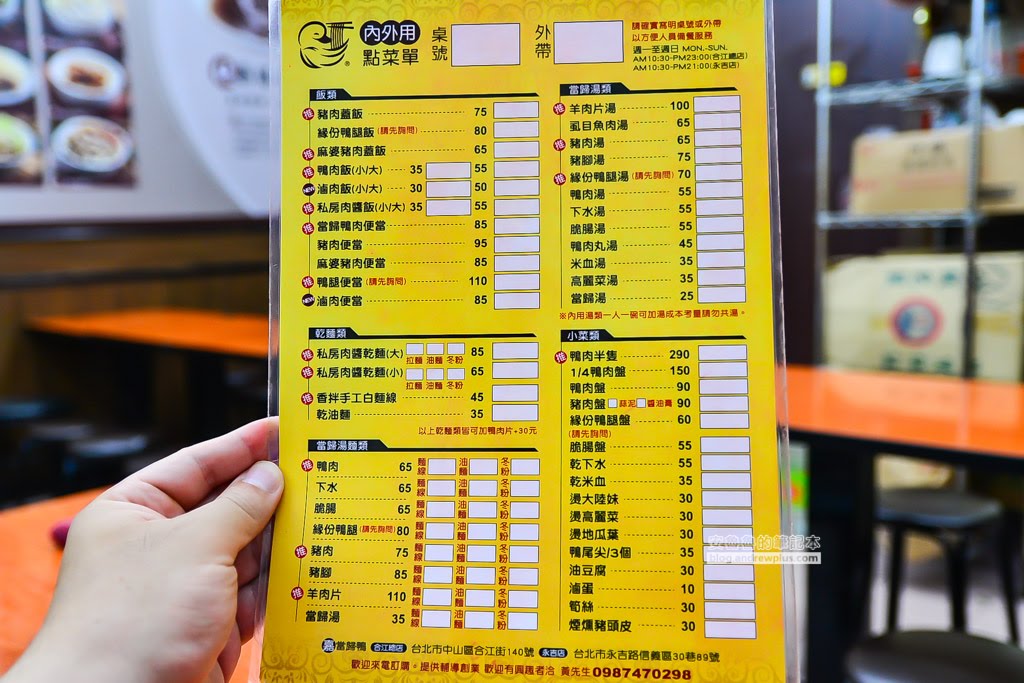 內外用
點菜單
桌號
外帶
請確實寫明桌號或外帶
以方便人員備餐服務
週一至週日 MON.-SUN.
AM10:30-PM23:00(合江總店)
AM10:30-PM21:00(永吉店)
飯類
推 豬肉蓋飯 75
緣份鴨腿飯(請先詢問) 80
推 麻婆豬肉蓋飯 65
推 鴨肉飯(小/大) 35 55
NEW 滷肉飯(小/大) 30 50
推 私房肉醬飯(小/大) 35 55
推 當歸鴨肉便當 85
豬肉便當 95
麻婆豬肉便當 85
推 鴨腿便當(請先詢問) 110
NEW 滷肉便當 85
乾麵類
推 私房肉醬乾麵(大) 85
拉麵 油麵 冬粉
推 私房肉醬乾麵(小) 65
拉麵 油麵 冬粉
推 香拌手工白麵線 45
乾油麵 35
以上乾麵類皆可加鴨肉片+30元
當歸湯麵類
推 鴨肉 65 麵線 油麵 冬粉
下水 65 麵線 油麵 冬粉
脆腸 65 麵線 油麵 冬粉
緣份鴨腿(請先詢問) 80 麵線 油麵 冬粉
推 豬肉 75 麵線 油麵 冬粉
豬腳 85 麵線 油麵 冬粉
推 羊肉片 110 麵線 油麵 冬粉
當歸湯 35 麵線 油麵 冬粉
當歸湯類
推 羊肉片湯 100
虱目魚肉湯 65
推 豬肉湯 65
豬腳湯 75
推 緣份鴨腿湯(請先詢問) 70
鴨肉湯 55
下水湯 55
脆腸湯 55
鴨肉丸湯 45
米血湯 35
高麗菜湯 35
當歸湯 25
※內用湯類一人一碗可加湯成本考量請勿共湯。
小菜類
推 鴨肉半隻 290
1/4鴨肉盤 150
鴨肉盤 90
豬肉盤 蒜泥 醬油膏 90
緣份鴨腿盤 60
(請先詢問)
脆腸盤 55
乾下水 55
乾米血 35
燙大陸妹 30
燙高麗菜 30
燙地瓜葉 30
鴨尾尖/3個 35
油豆腐 30
滷蛋 10
筍絲 30
煙燻豬頭皮 30
嘉 當歸鴨 合江總店 台北市中山區合江街140號 永吉店 台北市永吉路信義區30巷89號
歡迎來電訂購。提供輔導創業 歡迎有興趣者洽 黃先生0987470298
的筆記本
blog.andrewplus.com